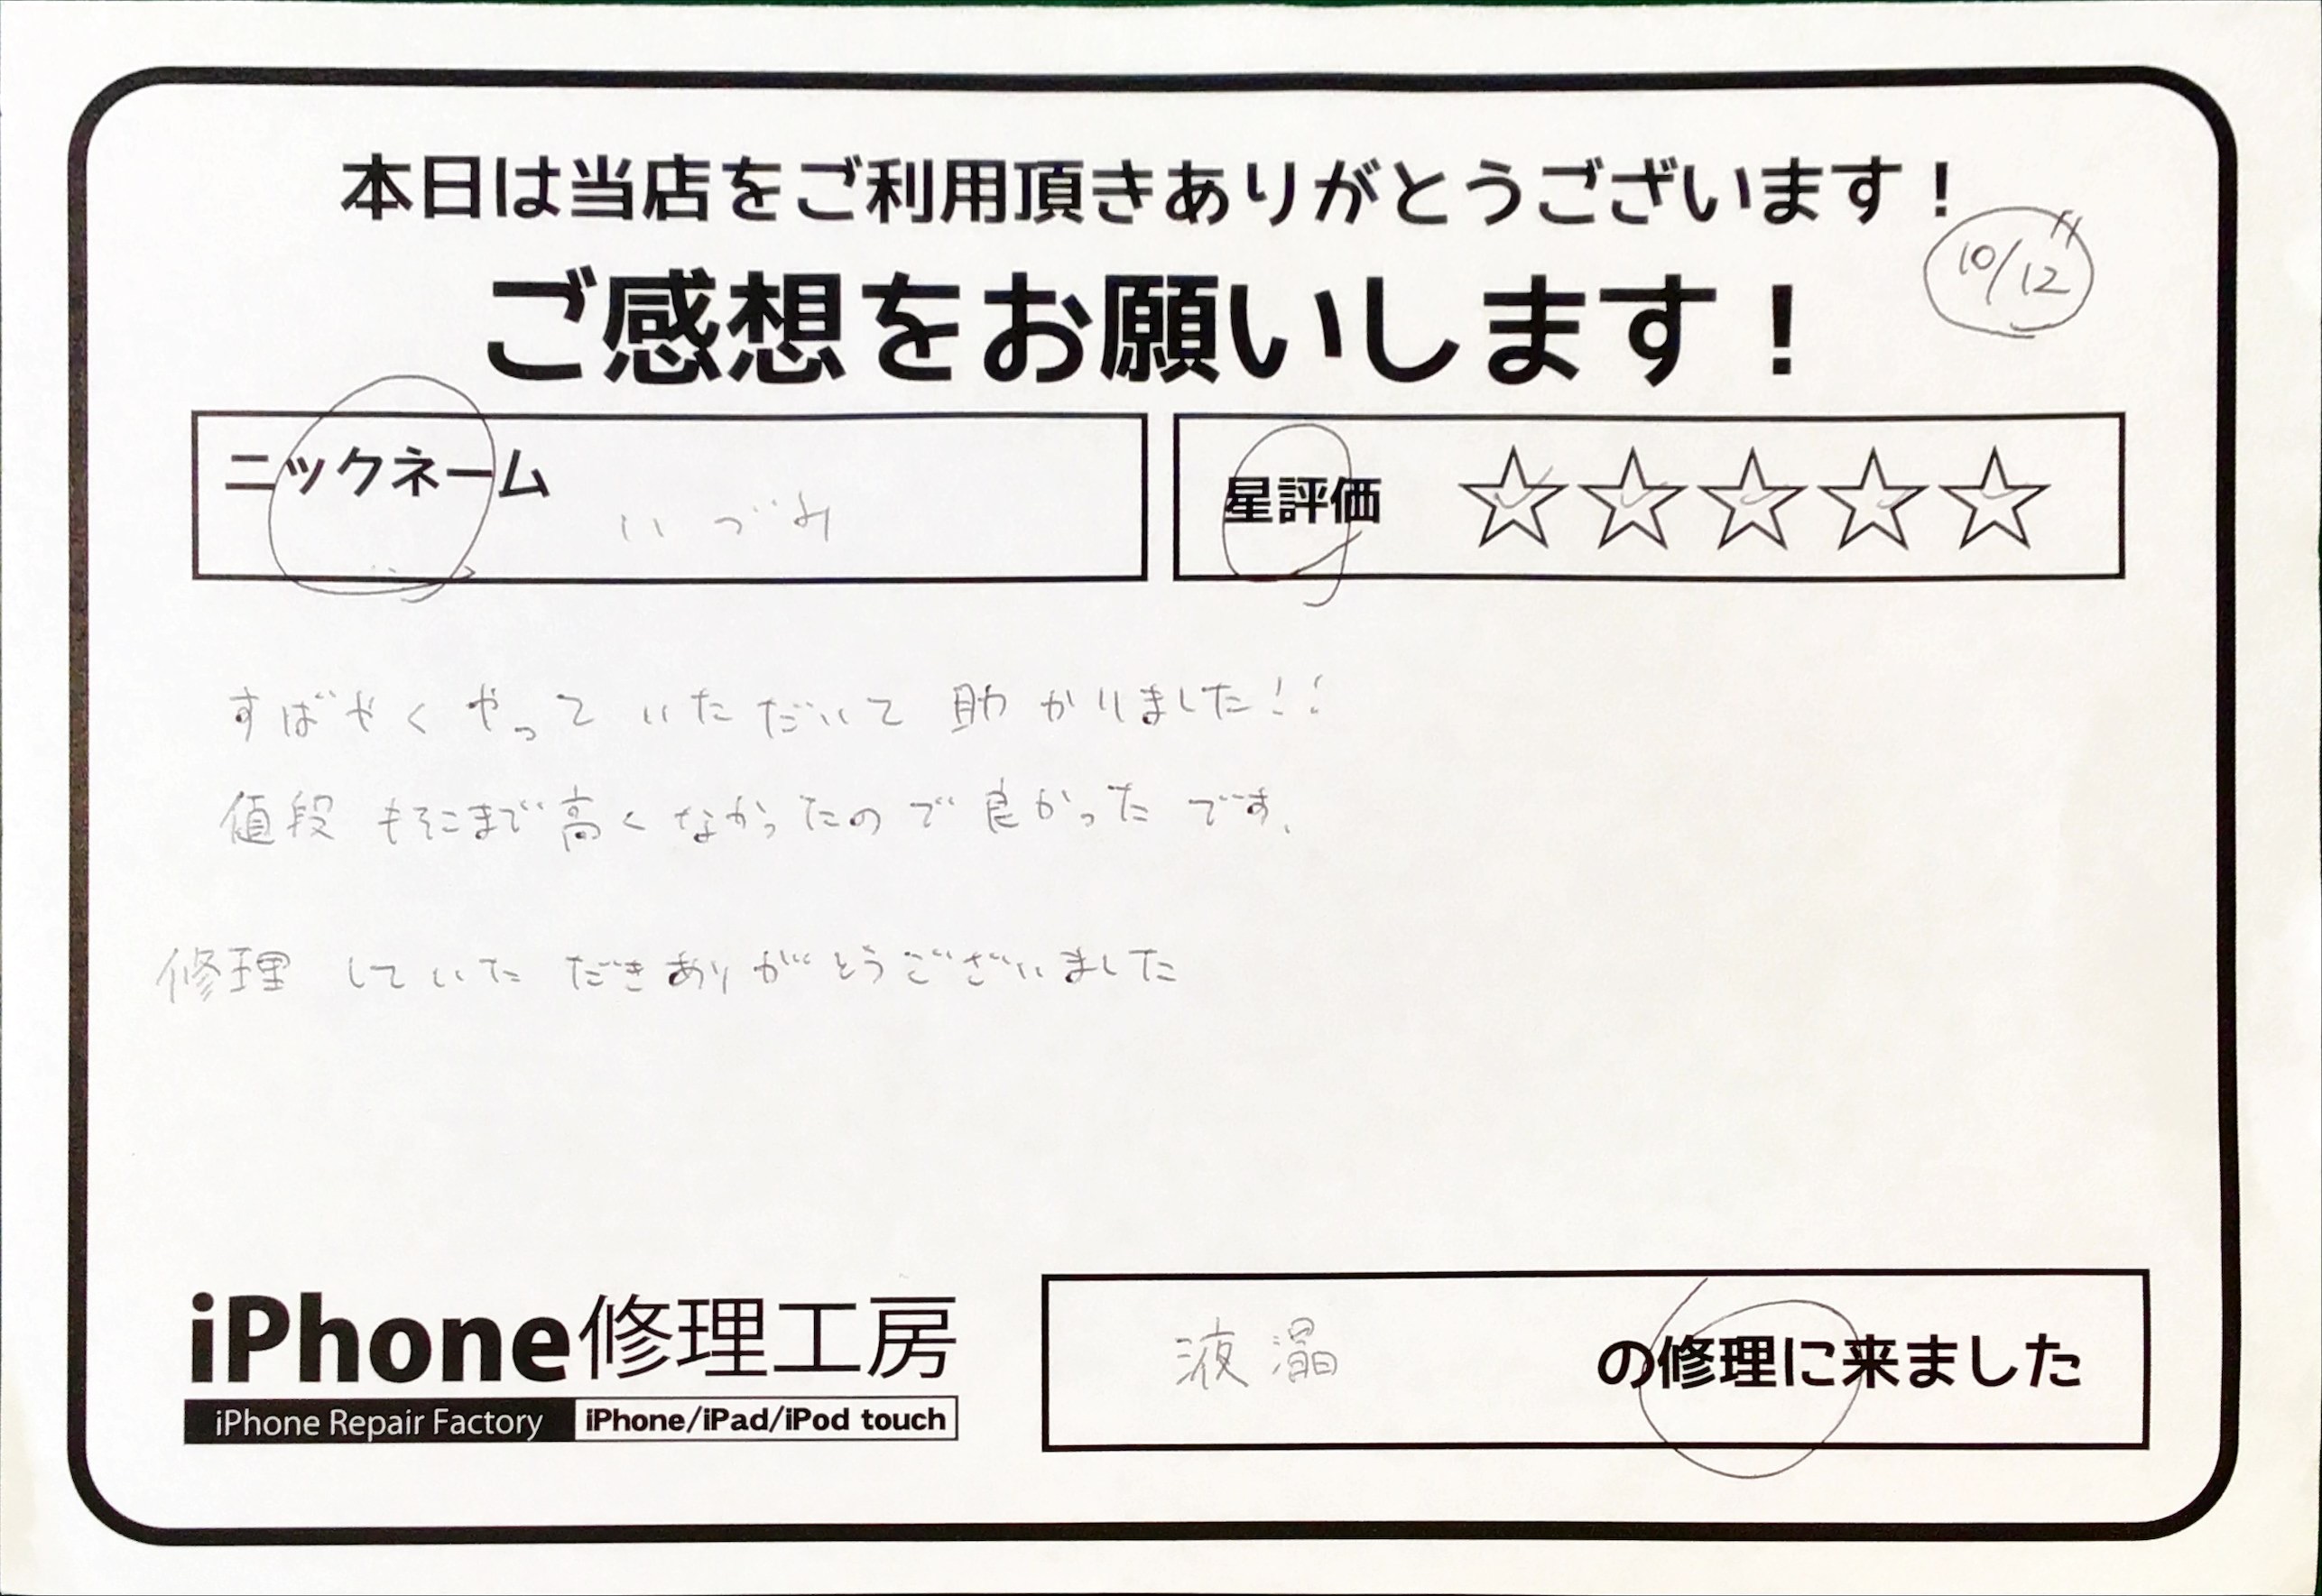 本日は当店をご利用頂きありがとうございます！
10/12
ご感想をお願いします！
ニックネーム いづみ
星評価 ☆☆☆☆☆
すばやくやっていただいて助かりました！！
値段もそこまで高くなかったので良かったです。
修理していただきありがとうございました
iPhone修理工房
iPhone Repair Factory iPhone/iPad/iPod touch
液晶 の修理に来ました